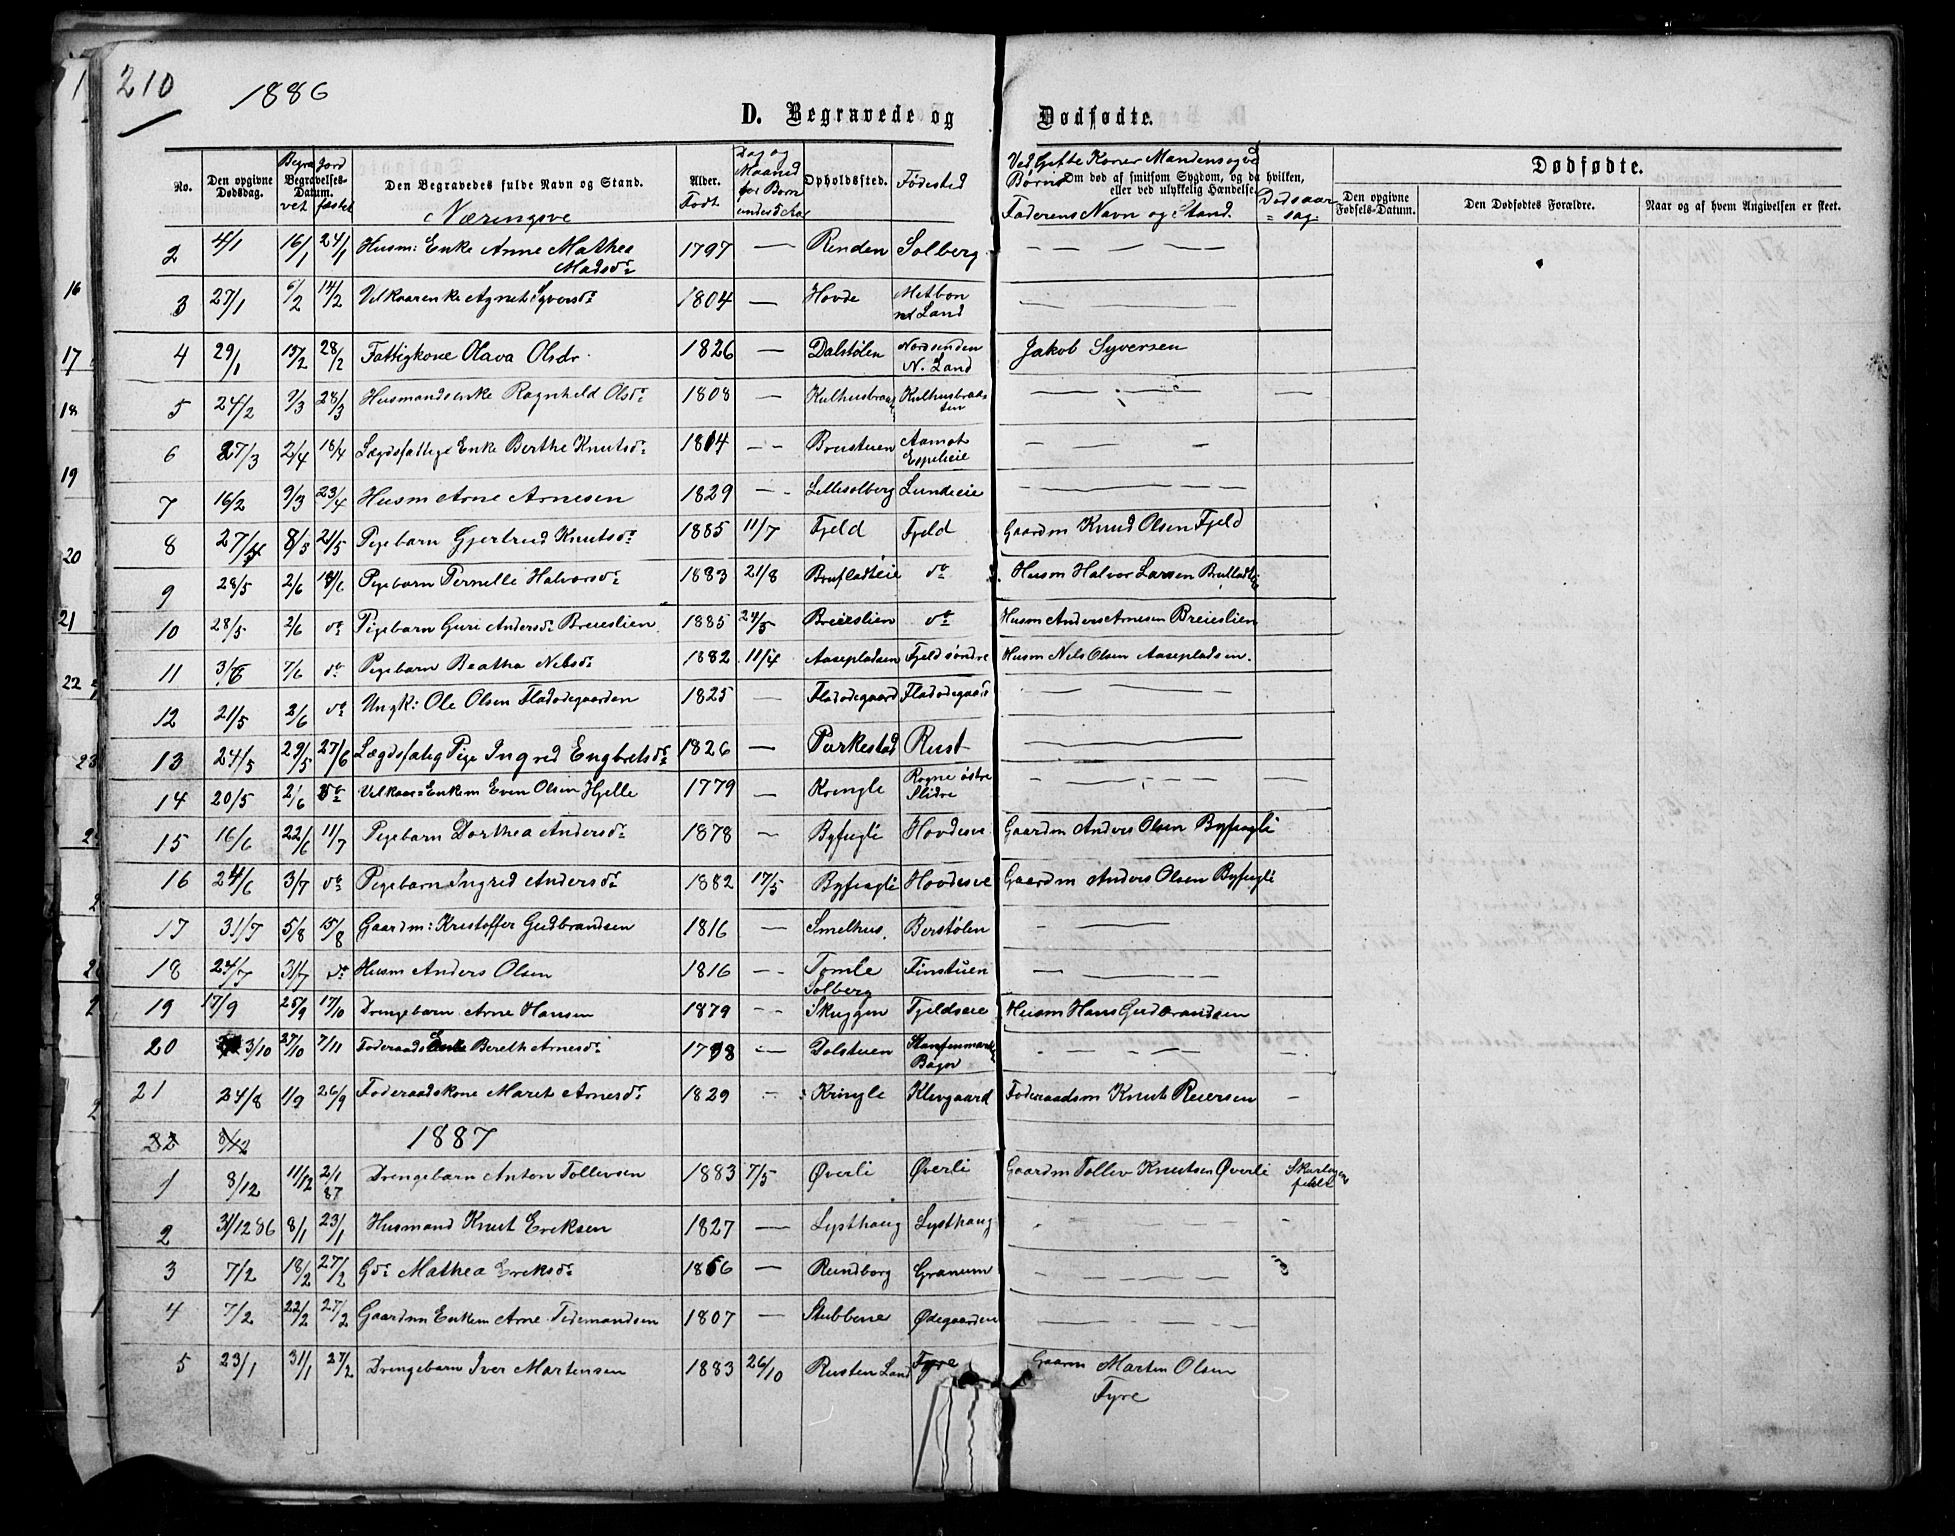 210
1886
D. Begravede og Dødfødte.
No. | Den opgivne Dødsdag. | Begravet | Jordfæstet | Begravelses-Datum. | Den Begravedes fulde Navn og Stand. Næringsve | Alder. Født | Dag og Maaned for Born under 5 Aar | Opholdssted. | Fødested | Ved Gifte Koner Mandens og ved Børns Faderens Navn og Stand. | Om død af smitsom Sygdom, og da hvilken, eller ved ulykkelig Hændelse. | Dødsaarsag | Dødfødte. | Den opgivne Fødsels-Datum. | Den Dødfødtes Forældre. | Naar og af hvem Angivelsen er skeet.
2 4/1 16/1 24/1 Husm: Enke Anne Mathea Madsdr 1797 — Rinden Solberg
3 27/1 6/2 14/2 Velkaarenke Agnet Syversdr 1804 — Hovde Metbon nd Land
4 29/1 15/2 28/2 Fattigkone Olava Olsdr. 1826 — Dalstølen Nordsinden N. Land Jakob Syversen
5 24/2 9/3 28/3 Husmandsenke Ragnheld Olsdr 1808 — Kulhusbraaten Kulhusbraaten
6 27/3 2/4 18/4 Lægdsfattige Enke Berthe Knutsdr 1814 — Breistuen Aamot Espelieie
7 16/2 9/3 23/4 Husm Arne Arnesen 1829 — Lillesolberg Lundeeie
8 27/4 8/5 21/5 Pigebarn Gjertrud Knutsdr 1885 11/7 Fjeld Fjeld Gaardm Knud Olsen Fjeld
9 28/5 2/6 18/6 Pigebarn Pernille Halvorsdr 1883 21/8 Brufladteie do Husm Halvor Larsen Brufladteie
10 28/5 2/6 do Pigebarn Guri Andersdr Breieslien 1885 24/5 Breieslien do Husm Anders Arnesen Breieslien
11 3/6 7/6 do Pigebarn Beatha Nilsdr 1882 11/4 Aasepladsen Fjeld søndre Husm Nils Olsen Aasepladsen.
12 21/5 2/6 do Ungk: Ole Olsen Fladødegaarden 1825 — Fladødegaard Fladødegaard
13 24/5 29/5 27/6 Lægdsfatig Pige Ingred Engbretsdr 1826 — Parkestad Rust
14 20/5 2/6 do Velkaar=Enkem Even Olsen Hjelle 1779 — Kringle Rogne østre Slidre
15 16/6 22/6 11/7 Pigebarn Dorthea Andersdr 1878 — Byfuglé Hovdeeie Gaardm Anders Olsen Byfuglé
16 24/6 3/7 do Pigebarn Ingrid Andersdr 1882 17/5 Byfuglé Hovdeeie Gaardm Anders Olsen Byfuglé
17 31/7 5/8 15/8 Gaardm: Kristoffer Gudbrandsen 1816 — Smelhus. Berstølen
18 24/7 31/7 do Husm Anders Olsen 1816 — Tomle Solberg Finstuen
19 17/9 25/9 17/10 Drengebarn. Arne Hansen 1879 — Skuggen Fjeldseie Husm Hans Gudbrandsen
20 3/10 27/10 7/11 Foderaads Enke Bereth Arnesdr 1798 — Dolstuen Bagn
21 24/8 1/9 26/9 Foderaadskone Marit Arnesdr 1829 — Kringle Klevgaard Foderaadsm Knut Reiersen —
22 8/12 1887
1 8/12 11/12 2/1 87 Drengebarn Anton Tollevsen 1883 7/5 Øverli Øverli Gaardm Tollev Knutsen Øverli
2 31/12 86 8/1 23/1 Husmand Knut Eriksen 1827 — Lysthaug Lysthaug
3 7/2 18/2 27/2 Gdr Mathea Eriksdr 1866 — Reindborg Granum
4 7/2 22/2 27/2 Gaardmn Enkem Arne Tidemandsen 1807 — Stubbene Ødegaarden
5 23/1 31/1 27/2 Drengebarn Iver Martensen 1883 26/10 Rusten Land Fyre Gaarm Martin Olsen Fyre
16
17
18
19
20
21
22
23